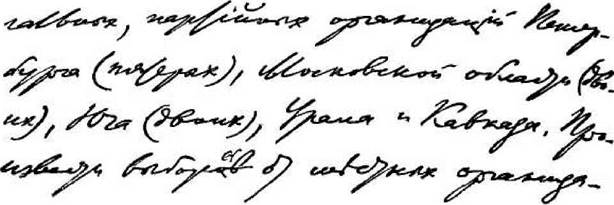 главных, партійных организацій Петер-
бурга (пятерых), Московской области (дво-
их), Юга (двоих), Урала и Кавказа. Про-
извести выборы от мѣстных организа-